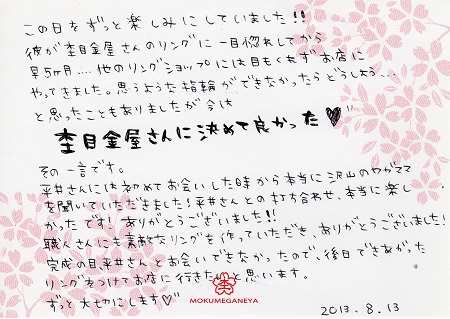 この日をずっと楽しみにしていました!!
彼が杢目金屋さんのリングに一目惚れしてから
早5ヶ月....他のリングショップには目もくれずお店に
やってきました。思うような指輪ができなかったらどうしよう...
と思ったこともありましたが今は
杢目金屋さんに決めて良かった♥
その一言です。
平井さんには初めてお会いした時から本当に沢山のワガママ
を聞いていただきました!平井さんとの打ち合わせ、本当に楽し
かったです!ありがとうございました!!
職人さんにも素敵なリングを作っていただき、ありがとうございました!
完成の日、平井さんとお会いできなかったので、後日できあがった
リングをつけてお店に行きたいと思います。
ずっと大切にします♡
MOKUMEGANEYA
2013.8.13